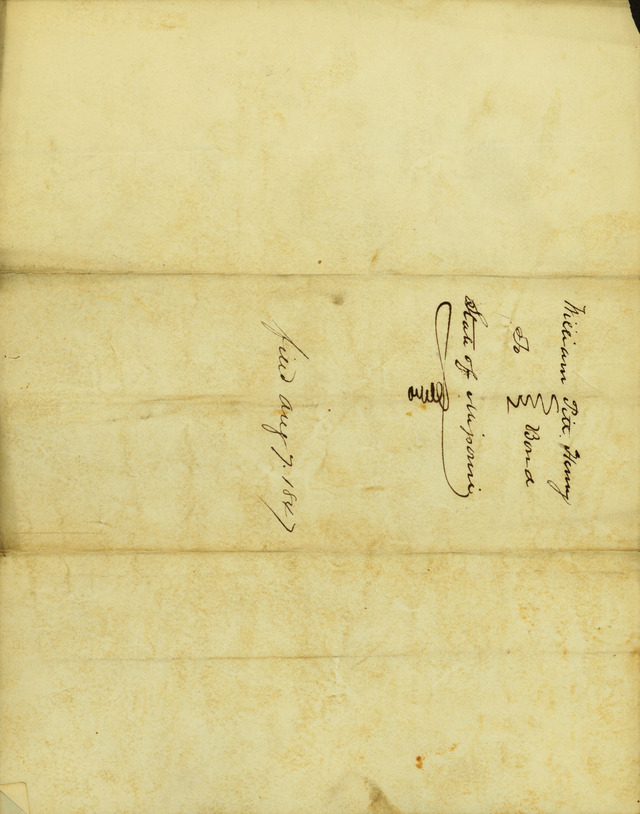 William Pitt Henry
To } Bond
State of Missouri
filed Aug 7. 1847